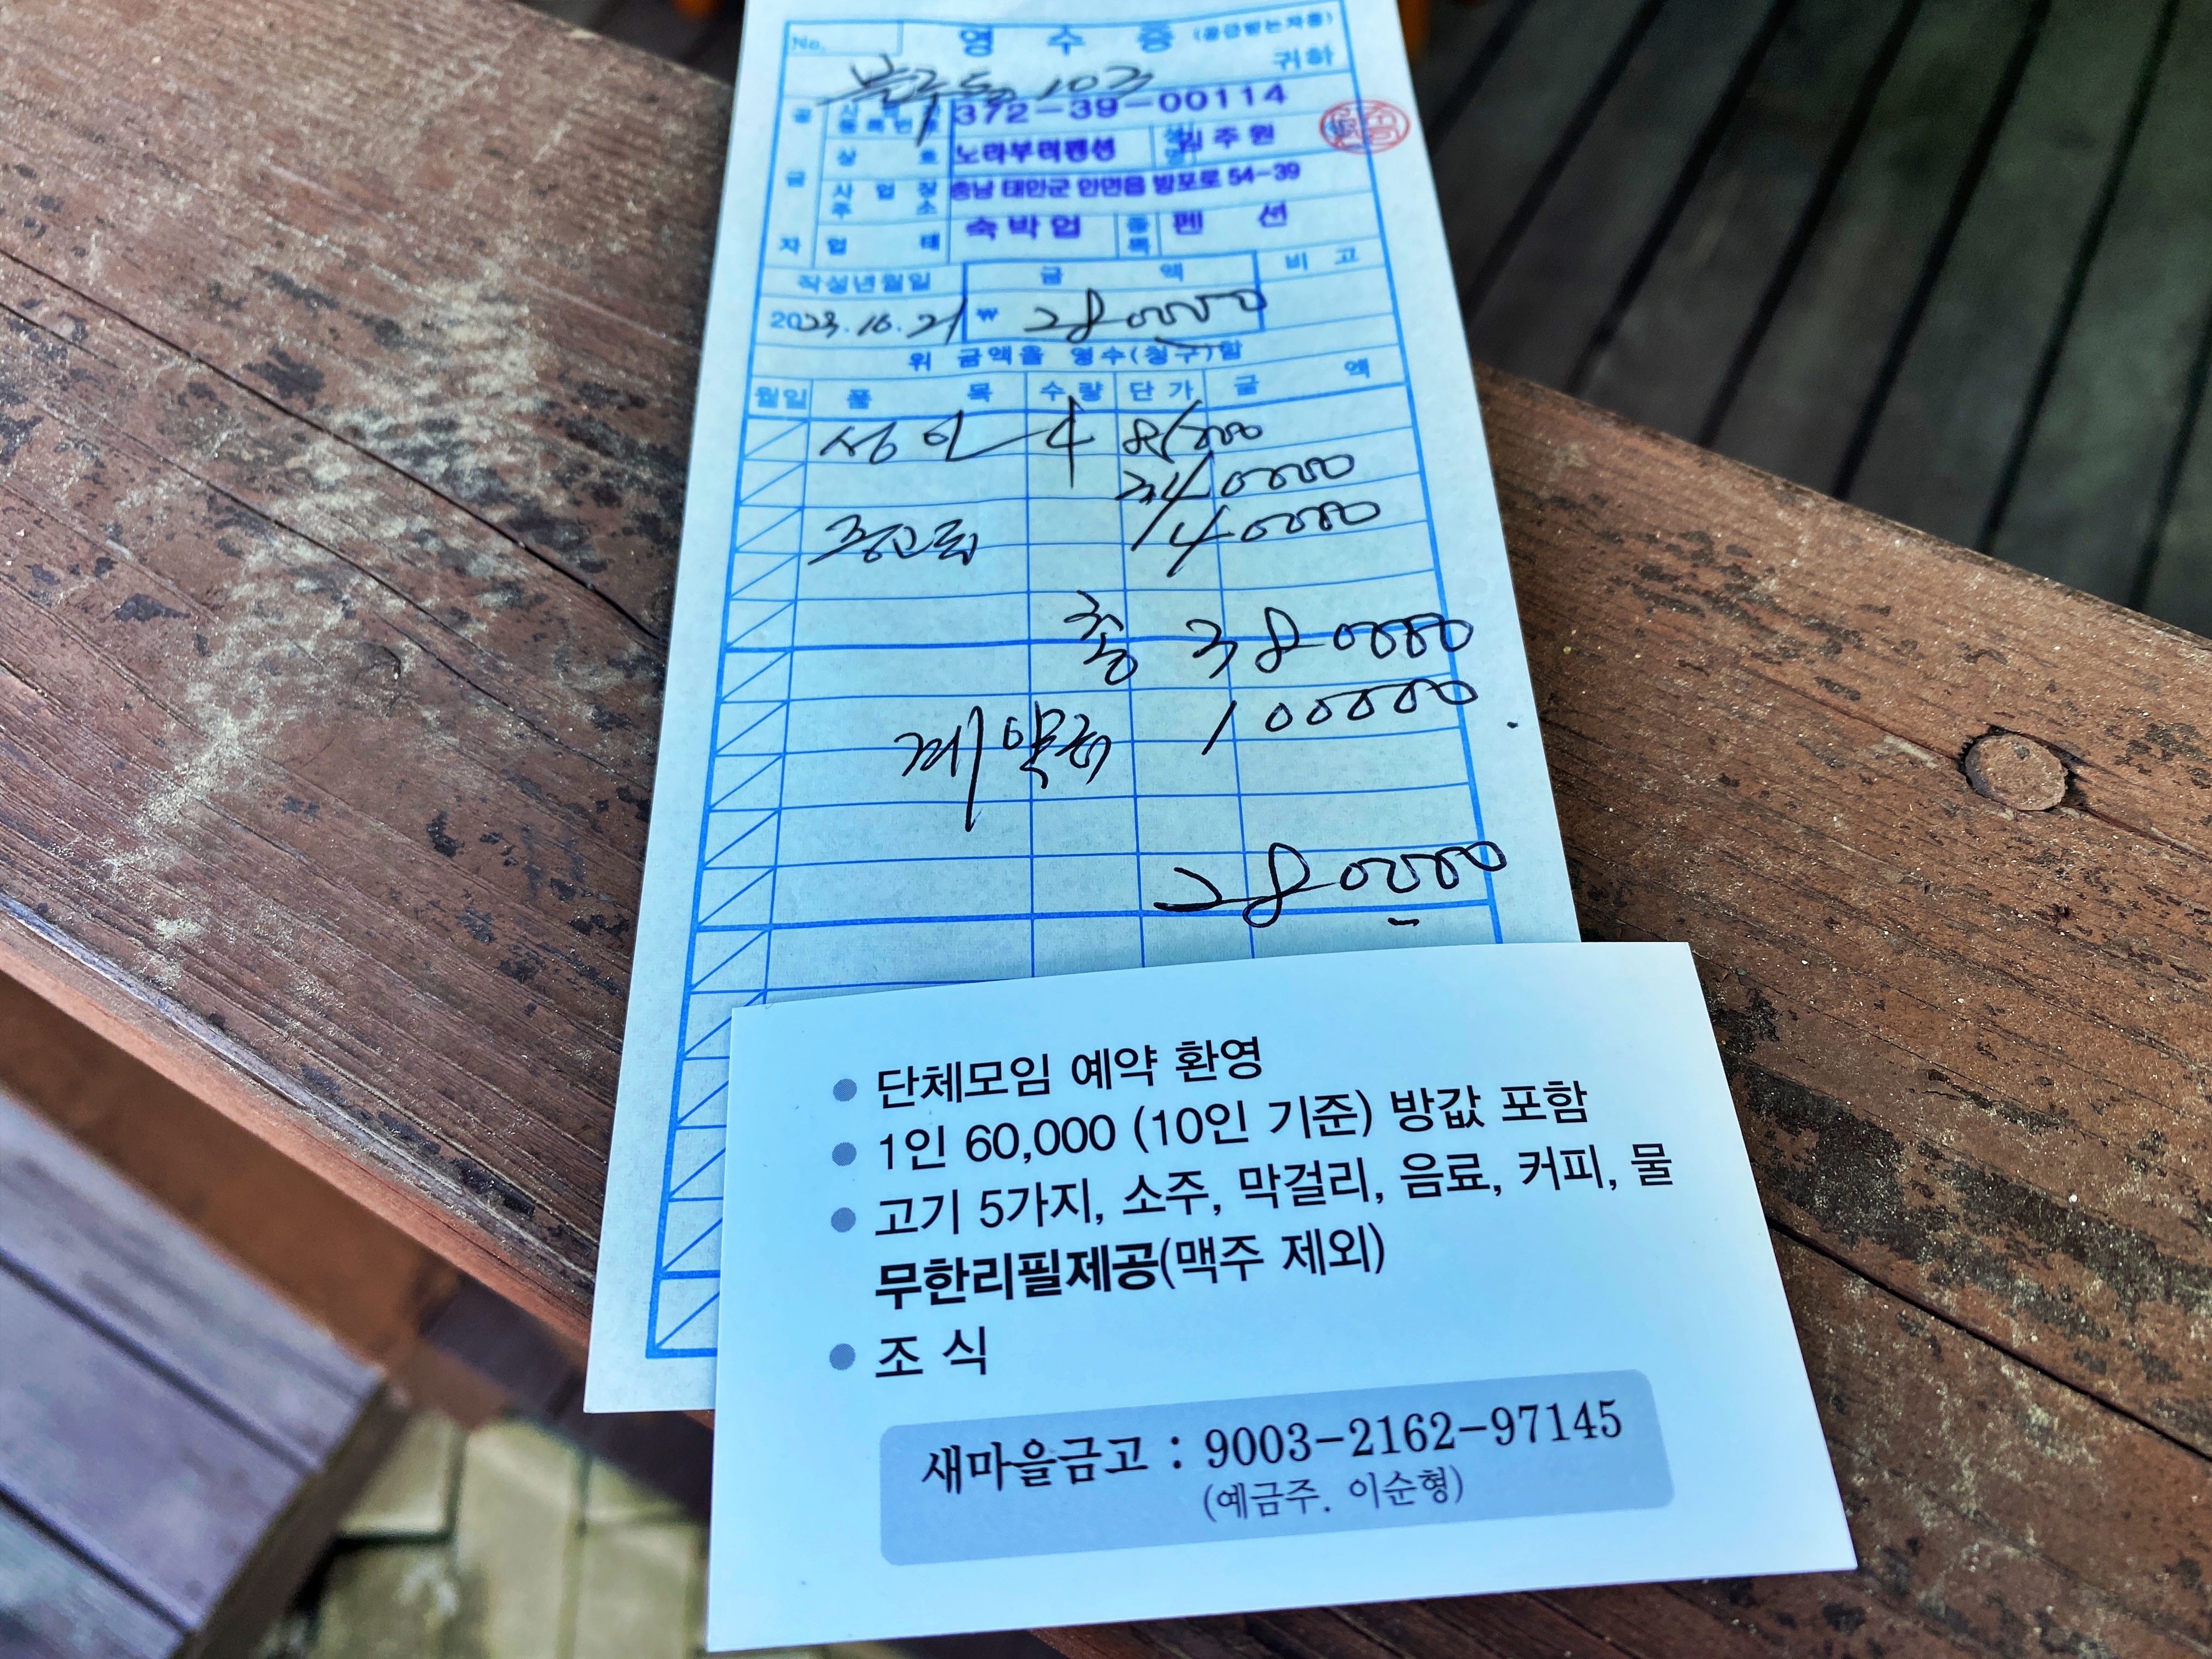 No.
영 수 증 (공급받는자용)
귀하
103
공 급 자
사업자등록번호 372-39-00114
상 호 노라부러펜션 성명 임주원
사업장주소 충남 태안군 안면읍 방포로 54-39
업 태 숙박업 종목 펜 션
작성년월일 금 액 비 고
2023.10.21 ₩ 280000
위 금액을 영수(청구)함
월일 품 목 수량 단가 금 액
성인 4 85000
340000
40000
총 380000
계약금 100000
280000
• 단체모임 예약 환영
• 1인 60,000 (10인 기준) 방값 포함
• 고기 5가지, 소주, 막걸리, 음료, 커피, 물
무한리필제공(맥주 제외)
• 조 식
새마을금고 : 9003-2162-97145
(예금주. 이순형)